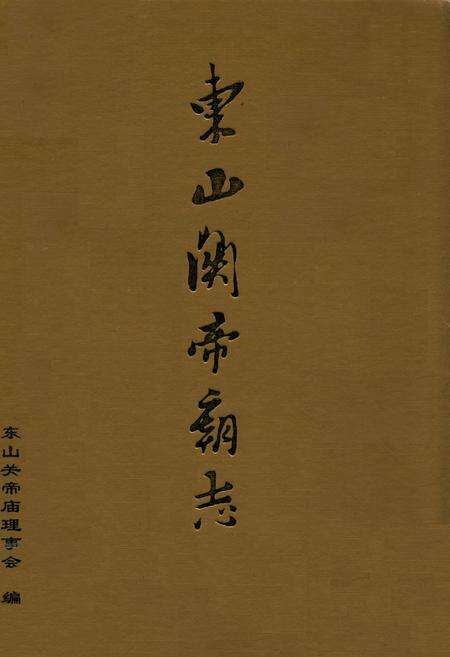 東山関帝廟志
东山关帝庙理事会 编